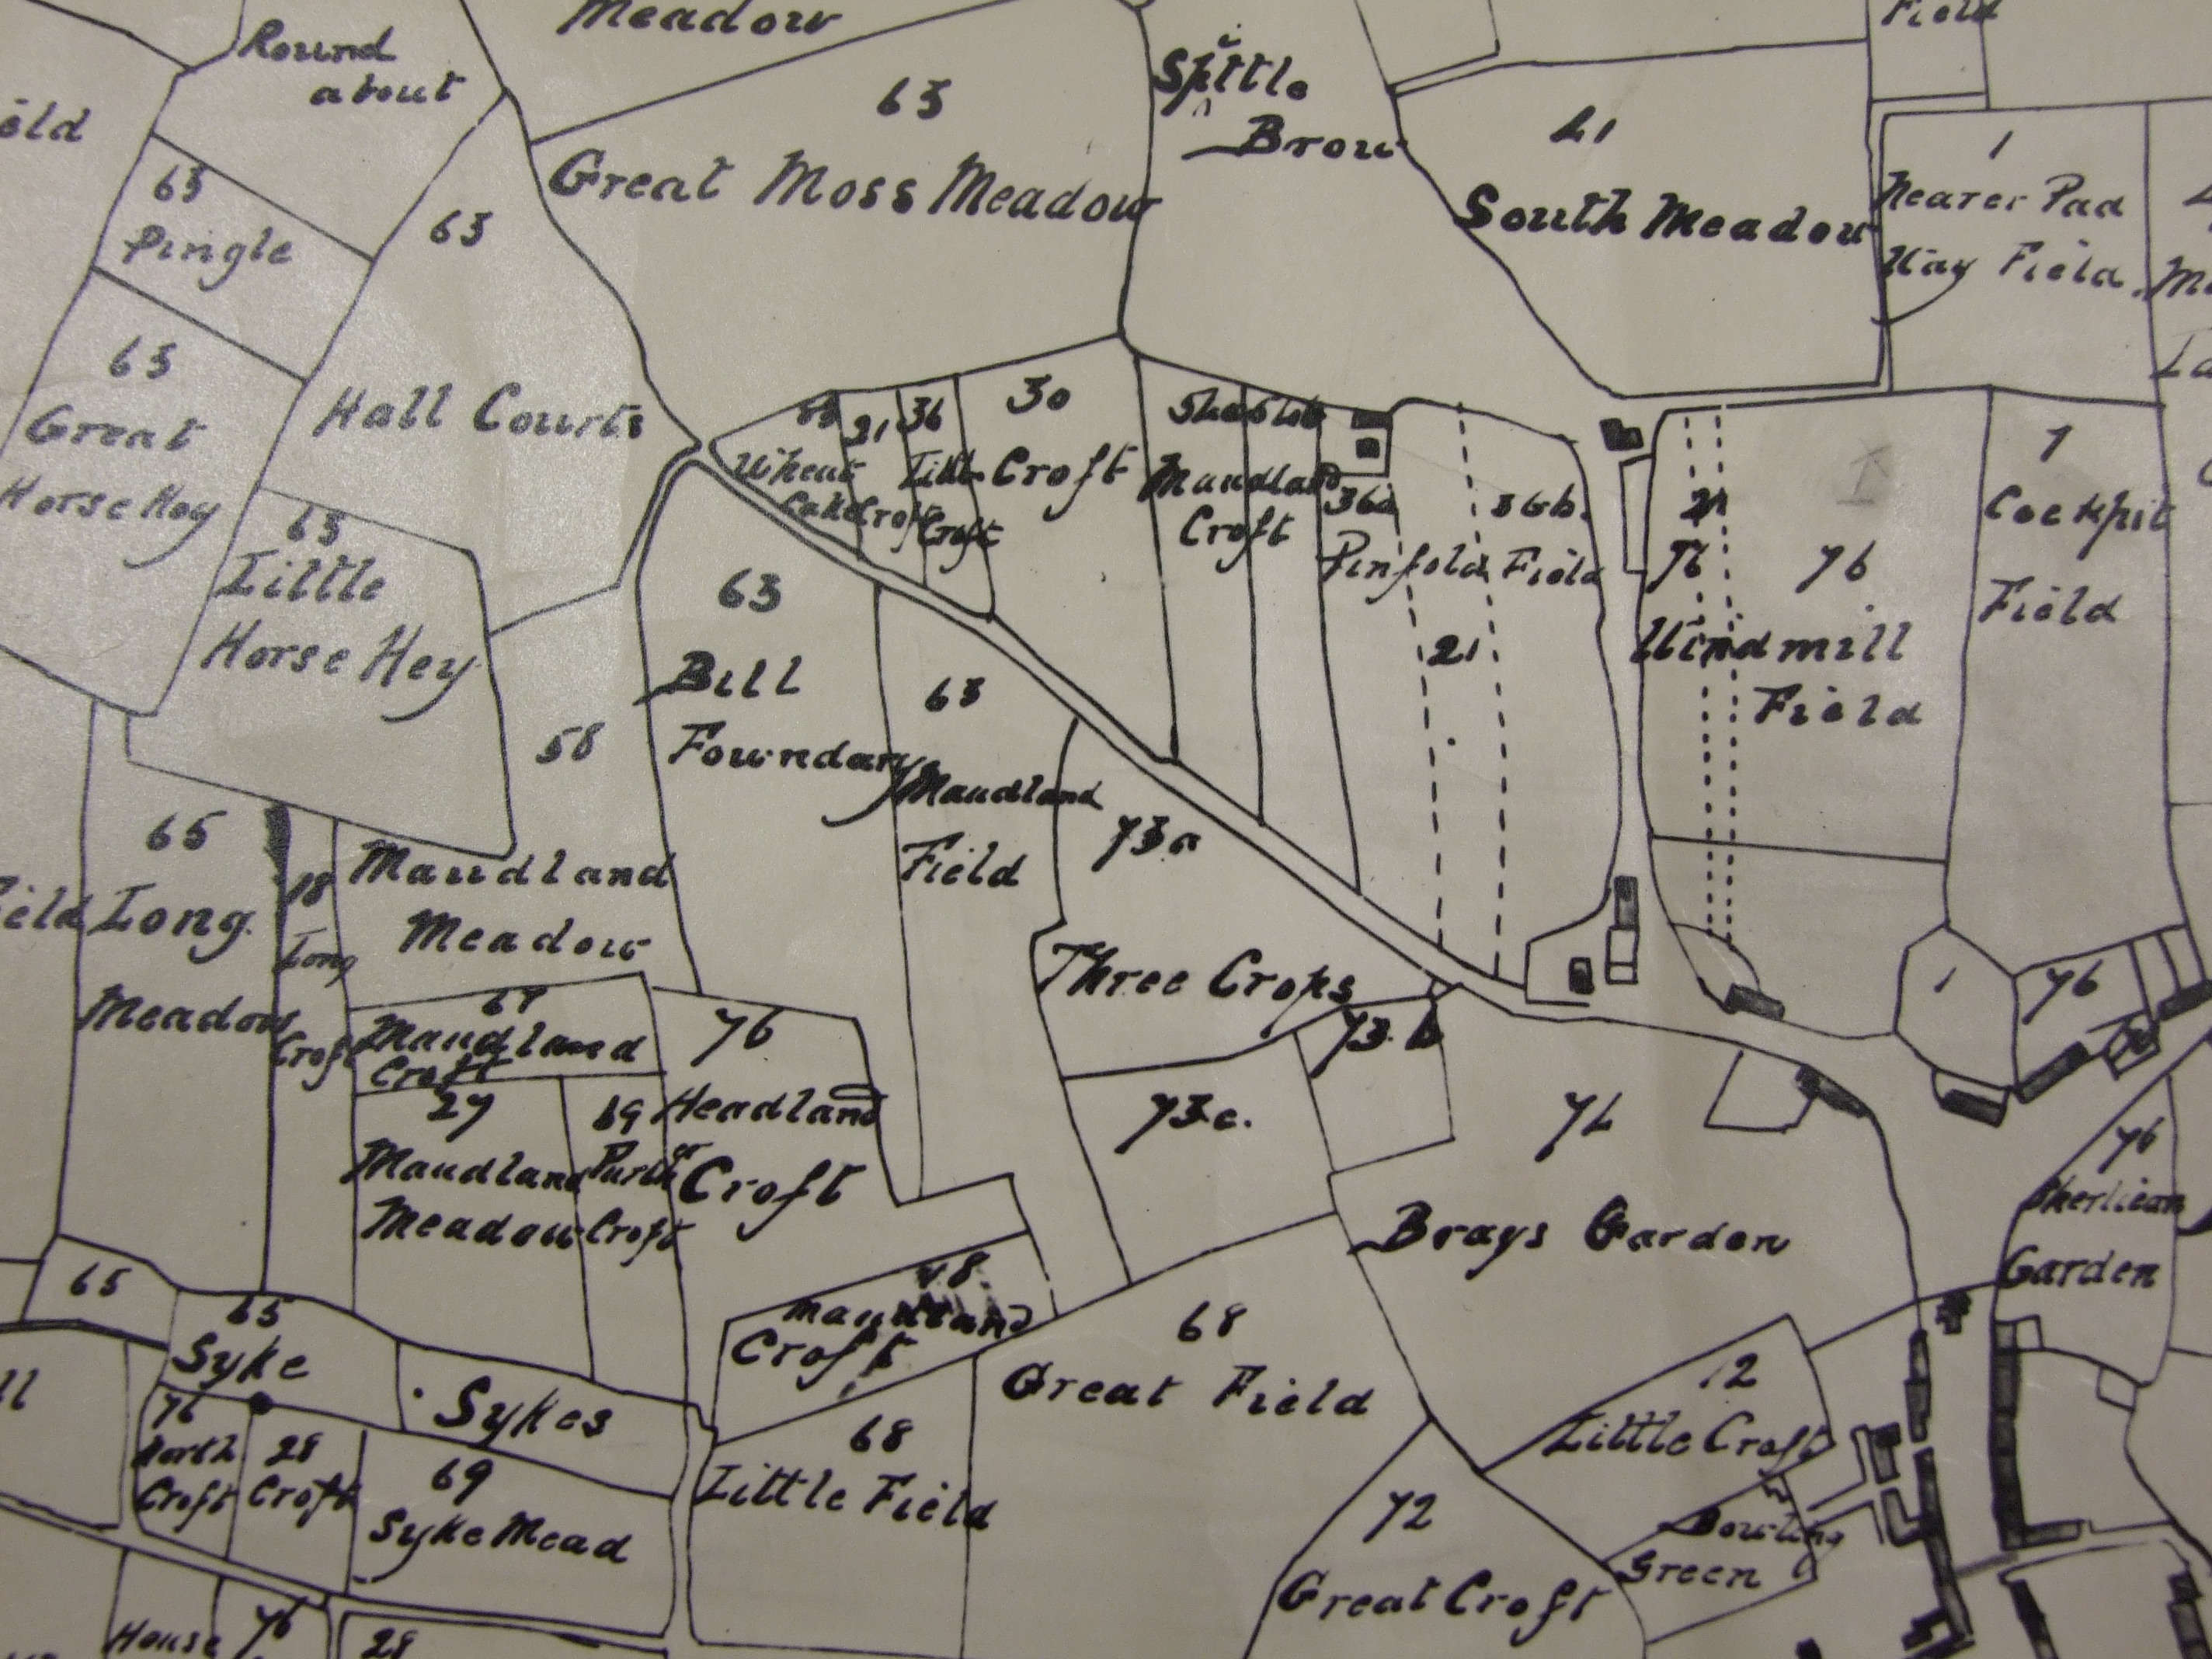 Meadow
Field
Round
about
63
Great Moss Meadow
Spittle
Brow
41
South Meadow
1
Nearer Pad
Way Field
eld
63
Pingle
63
Hall Courts
63
Great
Horse Hey
63
Little
Horse Hey
Wheat
Lake
21
Croft
36
Little
Croft
30
Croft
Maudland
Croft
36a
36b.
Pinfold Field
21
21
76
76
Windmill
Field
1
Cockpit
Field
63
Bill
Foundary
63
Maudland
Field
58
Maudland
Meadow
65
Long
Meadow
ield
18
Long
Croft
73a
Three Crops
73.b
73.c.
67
Maudland
Croft
76
Headland
or
Croft
27
Maudland
Meadow
69
Croft
1
76
74
Brays Garden
76
Garden
65
65
Syke
Sykes
Maudland
Croft
68
Great Field
68
Little Field
ll
76
North
Croft
28
Croft
69
Syke Mead
72
Little Croft
Bowling
Green
72
Great Croft
House
76
28